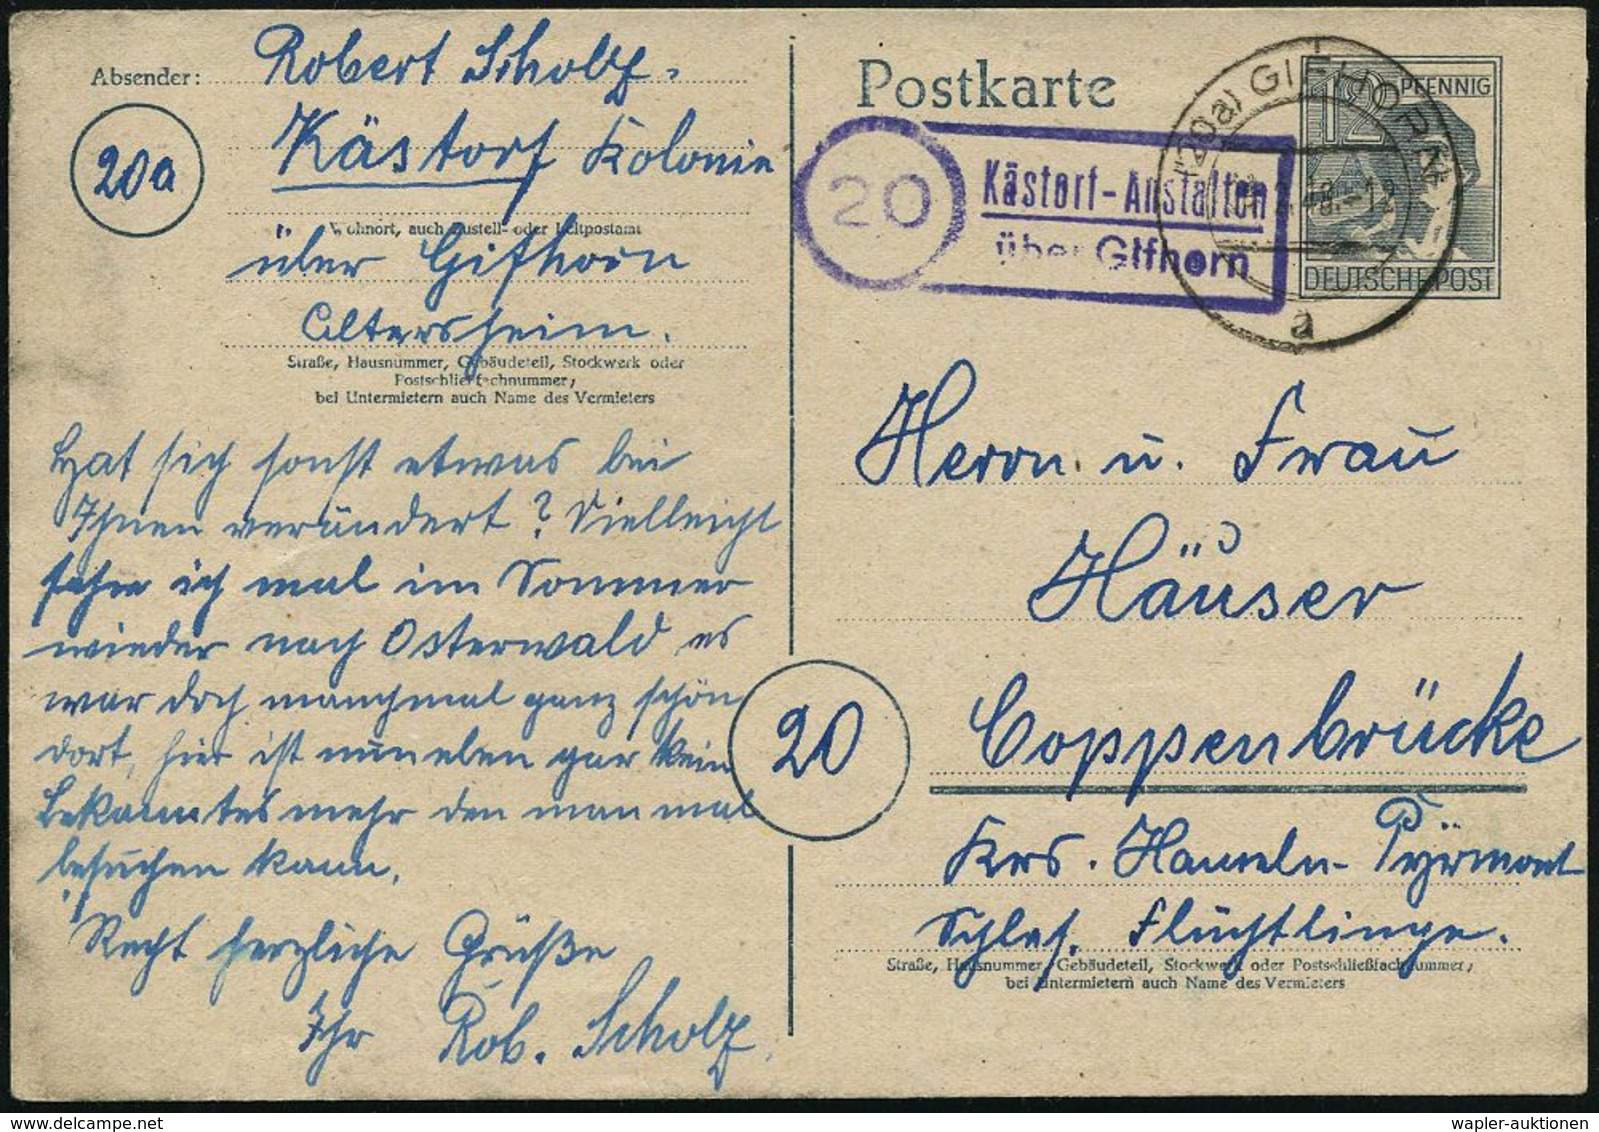 Absender: Robert Scholz.
20a
Kästorf Kolonie
Wohnort, auch Zustell- oder Leitpostamt
über Gifhorn
Altersheim.
Straße, Hausnummer, Gebäudeteil, Stockwerk oder
Postschließfachnummer,
bei Untermietern auch Name des Vermieters
Hat sich sonst etwas bei
Ihnen verändert? Vielleicht
sehe ich mal im Sommer
wieder nach Osterwald es
war doch manchmal ganz schön
dort, hier ist nun eben gar kein
Bekanntes mehr den man mal
besuchen kann.
Recht herzliche Grüße
Ihr Rob. Scholz.
Postkarte
20
Kästorf-Anstalten
über Gifhorn
(20a) GIFHORN
48.-12
a
12 PFENNIG
DEUTSCHE POST
Herrn u. Frau
Häuser
20
Coppenbrücke
Krs. Hameln-Pyrmont
Schles. Flüchtlinge.
Straße, Hausnummer, Gebäudeteil, Stockwerk oder Postschließfachnummer,
bei Untermietern auch Name des Vermieters
wapler-auktionen